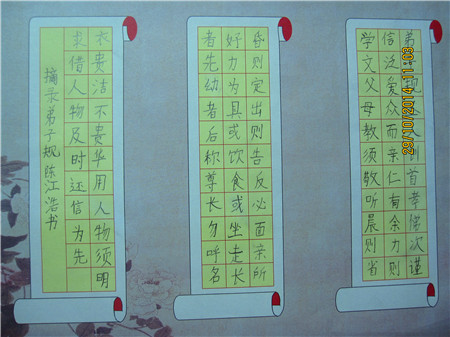 弟规人首孝悌次谨
信泛爱众而亲仁有余力则
学文父母教须敬听晨则省
昏则定出则告反必面亲所
好力为具或饮食或坐走长
者先幼者后称尊长勿呼名
衣贵洁不贵华用人物须明
求借人物及时还信为先
摘录弟子规陈江浩书
29/10/2014 11:03